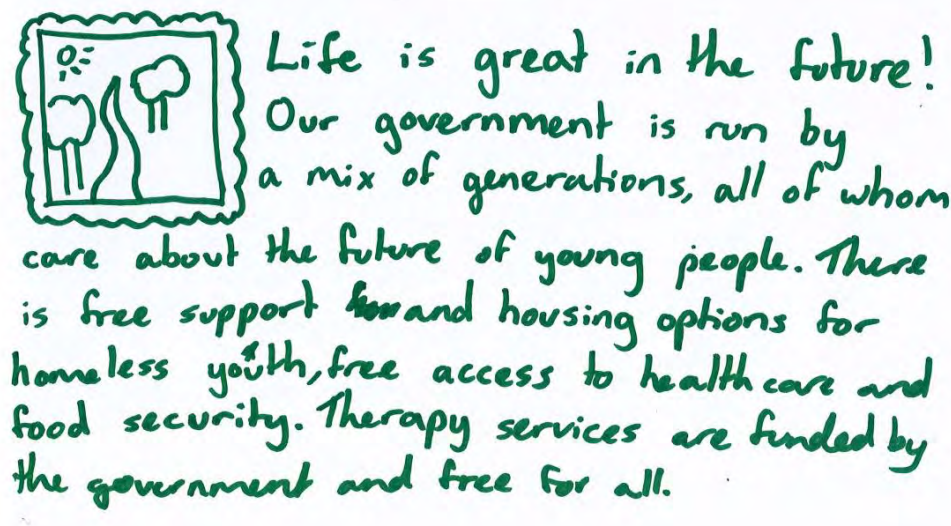 Life is great in the future!
Our government is run by
a mix of generations, all of whom
care about the future of young people. There
is free support and housing options for
homeless youth, free access to healthcare and
food security. Therapy services are funded by
the government and free for all.